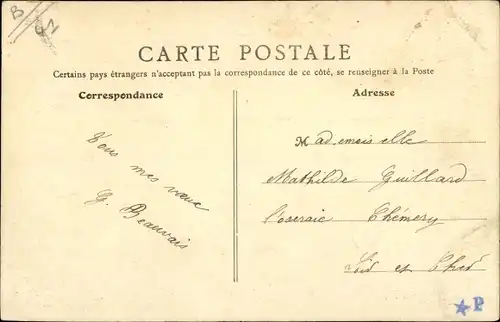 CARTE POSTALE
Certains pays étrangers n'acceptant pas la correspondance de ce côté, se renseigner à la Poste
Correspondance
Adresse
Tous mes vœux
G. Beauvais
Mademoiselle
Mathilde Guillard
l'oseraie Chémery
Loir et Cher
P